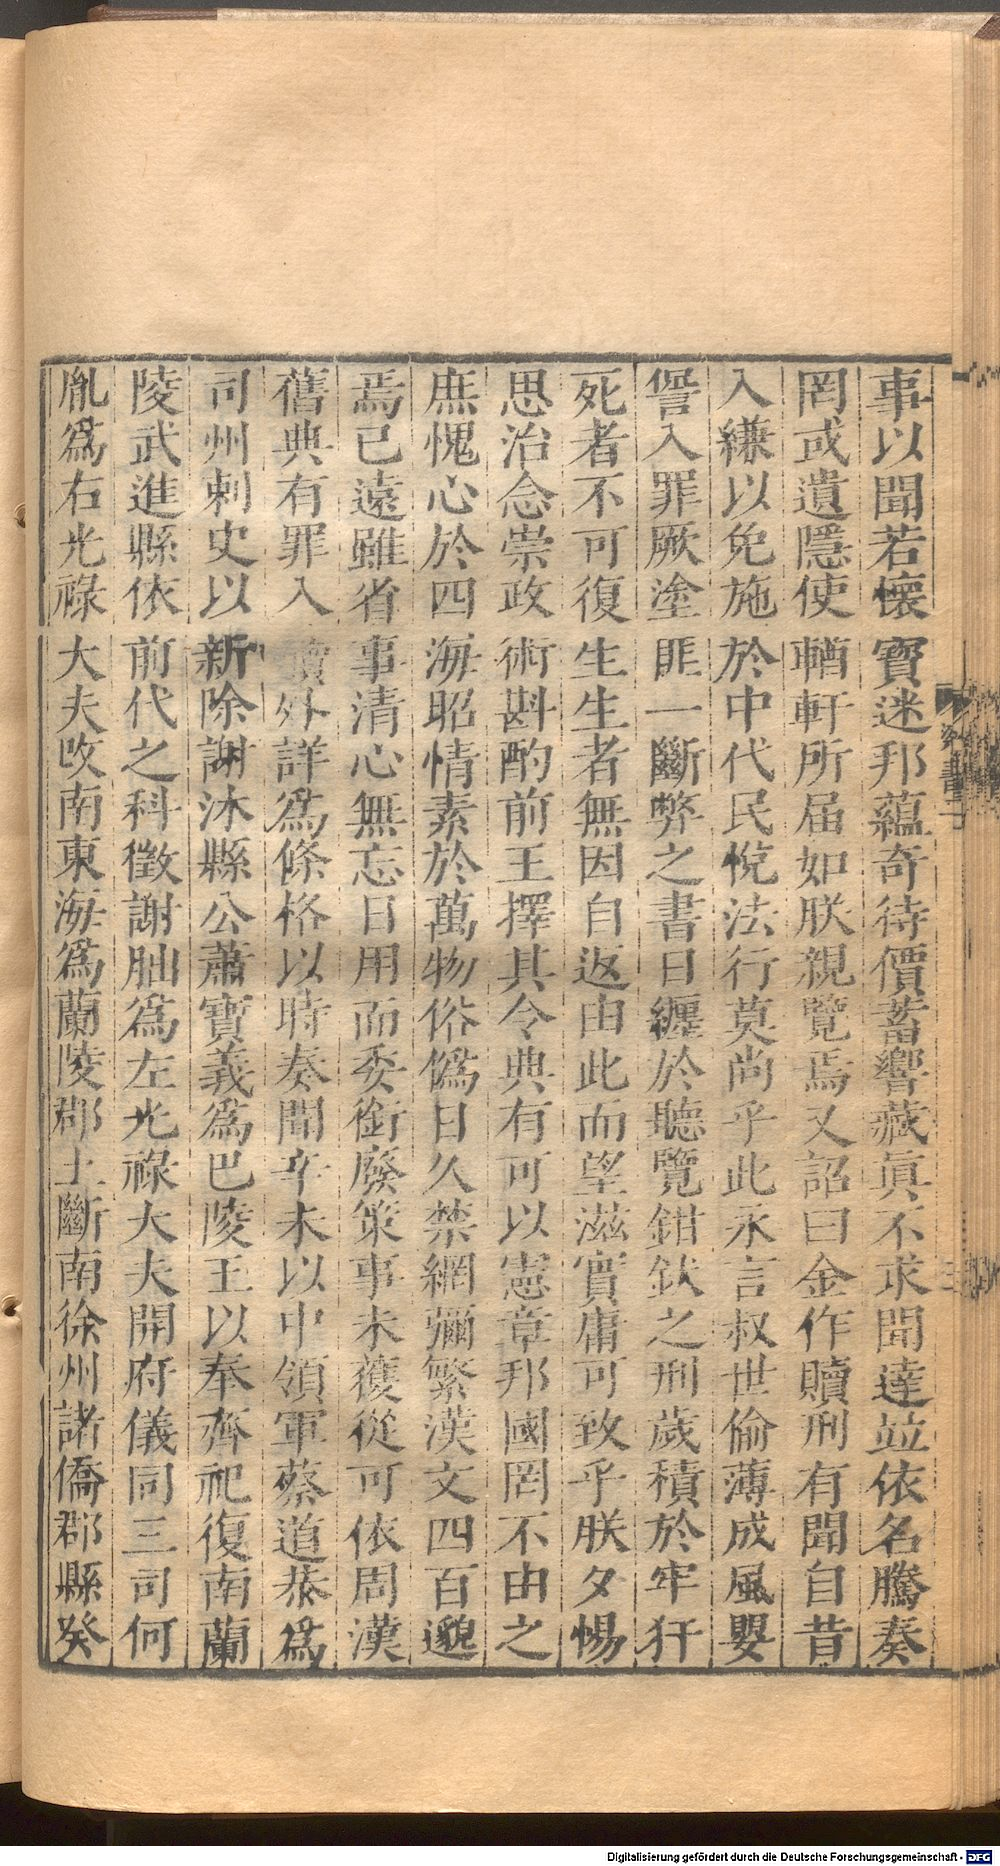 事以聞若懷寶迷邦蘊奇待價蓄響藏眞不求聞達竝依名騰奏
罔或遺隱使輶軒所届如朕親覽焉又詔曰金作贖刑有聞自昔
入縑以免施於中代民悅法行莫尚乎此永言叔世偷薄成風嬰
諐入罪厥塗匪一斷弊之書日纏於聽覽鉗釱之刑歲積於牢犴
死者不可復生生者無因自返由此而望滋實庸可致乎朕夕惕
思治念崇政術斟酌前王擇其令典有可以憲章邦國罔不由之
庶愧心於四海昭情素於萬物俗僞日久禁網彌繁漢文四百邈
焉已遠雖省事清心無忘日用而委銜廢策事未獲從可依周漢
舊典有罪入贖外詳爲條格以時奏聞辛未以中領軍蔡道恭爲
司州刺史以新除謝沐縣公蕭寶義爲巴陵王以奉齊祀復南蘭
陵武進縣依前代之科徵謝朏爲左光祿大夫開府儀同三司何
胤爲右光祿大夫攺南東海爲蘭陵郡土斷南徐州諸僑郡縣癸
梁書二
Digitalisierung gefördert durch die Deutsche Forschungsgemeinschaft - DFG